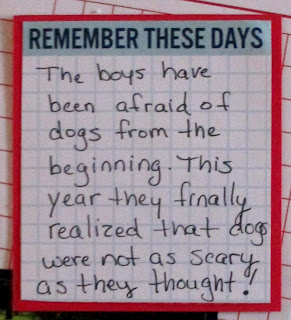 REMEMBER THESE DAYS
The boys have
been afraid of
dogs from the
beginning. This
year they finally
realized that dogs
were not as scary
as they thought!